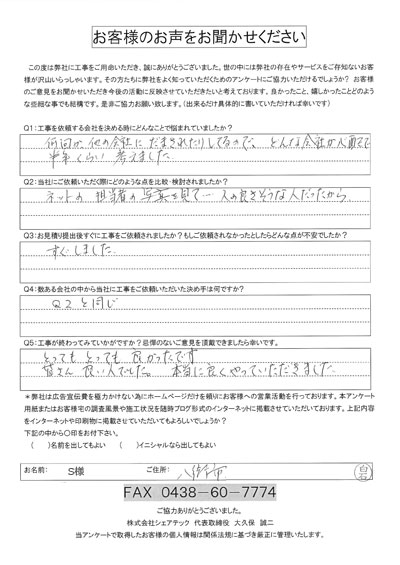 お客様のお声をお聞かせください
この度は弊社に工事をご用命いただき、誠にありがとうございました。世の中には弊社の存在やサービスをご存知ないお客
様が沢山いらっしゃいます。その方たちに弊社をよく知っていただくためのアンケートにご協力いただけるでしょうか? お客様
のご意見をお聞かせいただき今後の活動に反映させていただきたいと考えております。良かったこと、嬉しかったことどのよう
な些細な事でも結構です。是非ご協力お願い致します。(出来るだけ具体的に書いていただければ幸いです)
Q1:工事を依頼する会社を決める時にどんなことで悩まれていましたか?
何回か、他の会社に だまされたりしてるので、どんな会社か人間で
半年くらい 考えました。
Q2:当社にご依頼いただく際にどのような点を比較・検討されましたか?
ネットの 担当者の 写真を見て… 人の良さそうな人だったから
Q3:お見積り提出後すぐに工事をご依頼されましたか?もしご依頼されなかったとしたらどんな点が不安でしたか?
すぐしました。
Q4:数ある会社の中から当社に工事をご依頼いただいた決め手は何ですか?
Q2と同じ
Q5:工事が終わってみていかがですか?忌憚のないご意見を頂戴できましたら幸いです。
とっても とっても 良かったです
皆さん 良い人でした。 本当に良くやっていただきました。
*弊社は広告宣伝費を極力かけない為にホームページだけを頼りにお客様への営業活動を行っております。本アンケート
用紙またはお客様宅の調査風景や施工状況を随時ブログ形式のインターネットに掲載させていただいております。上記内容
をインターネットや印刷物に掲載させていただいてもよろしいでしょうか?
下記の中から〇印をお付下さい。
( )名前を出してもよい ( )イニシャルなら出してもよい
お名前: S様 ご住所: 八街市
FAX 0438-60-7774
ご協力ありがとうございました。
株式会社シェアテック 代表取締役 大久保 誠二
当アンケートで取得したお客様の個人情報は関係法規に基づき厳正に管理いたします。